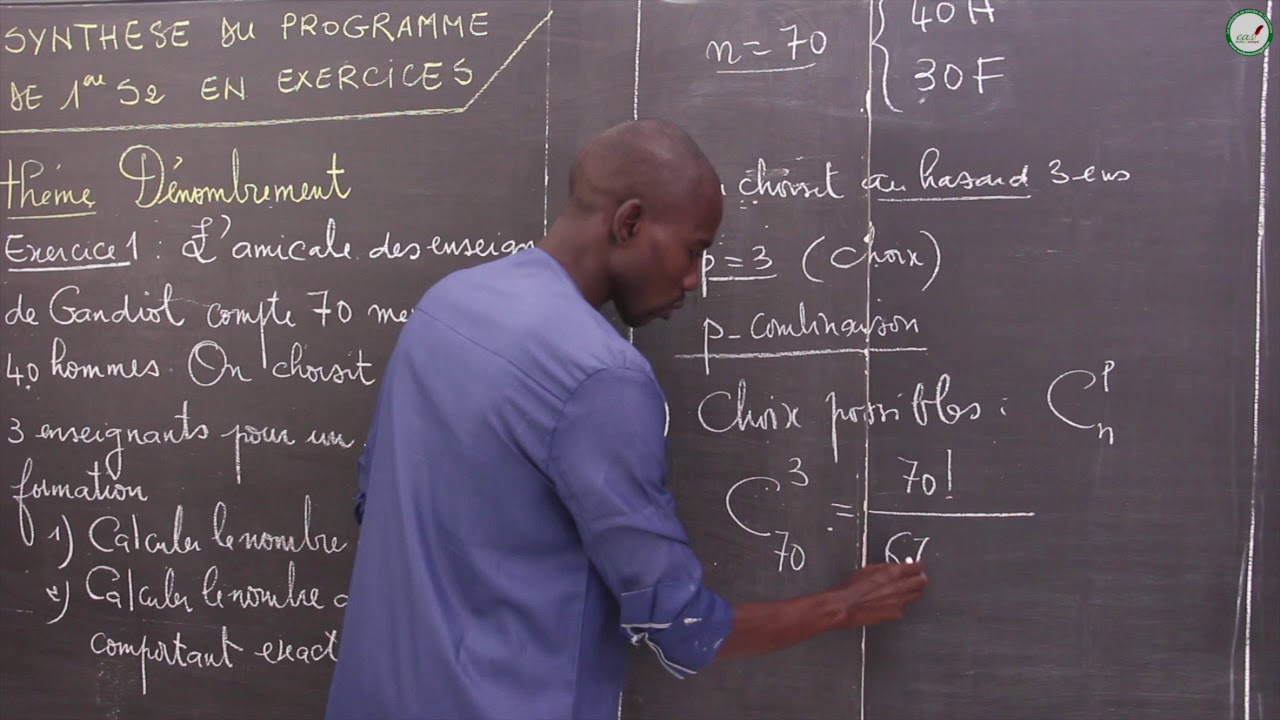 SYNTHESE DU PROGRAMME
DE 1ère S2 EN EXERCICES
thème Dénombrement
Exercice 1 : L'amicale des enseign
de Gandiol compte 70 me
40 hommes. On choisit
3 enseignants pour un
formation
1) Calculer le nombre
2) Calculer le nombre
comportant exact
n = 70
40 H
30 F
choisit au hasard 3 ens
p = 3 (choix)
p-combinaison
Choix possibles : C p n
C 3 70 = 70!
67
eas